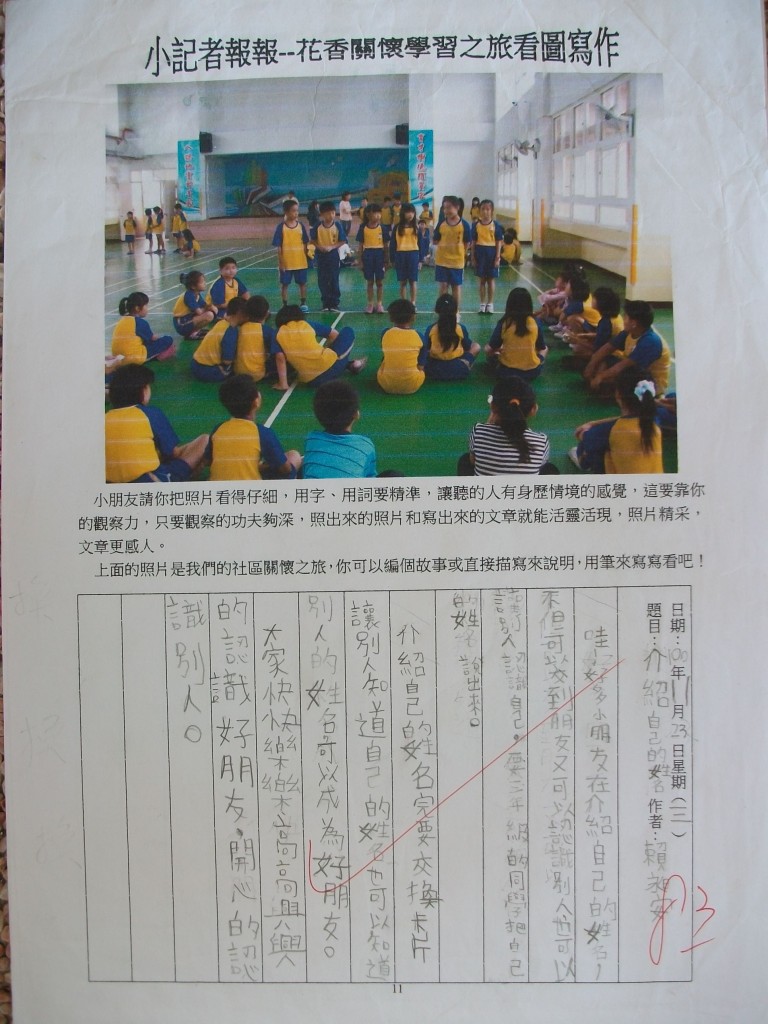 小記者報報--花香關懷學習之旅看圖寫作
小朋友請你把照片看得仔細，用字、用詞要精準，讓聽的人有身歷情境的感覺，這要靠你
的觀察力，只要觀察的功夫夠深，照出來的照片和寫出來的文章就能活靈活現，照片精采，
文章更感人。
上面的照片是我們的社區關懷之旅，你可以編個故事或直接描寫來說明，用筆來寫寫看吧！
日期：100年11月23日星期（三）
題目：介紹自己的姓名 作者：賴
哇！好多小朋友在介紹自己的姓名，
不但可以交到朋友又可以認識別人也可以
請別人認識自己。要三年級的同學把自己
的姓名說出來。
介紹自己的姓名完要交換卡片
讓別人知道自己的姓名也可以知道
別人的姓名可以成為好朋友。
大家快快樂樂高高興興
的認識好朋友，開心的認
識別人。
11